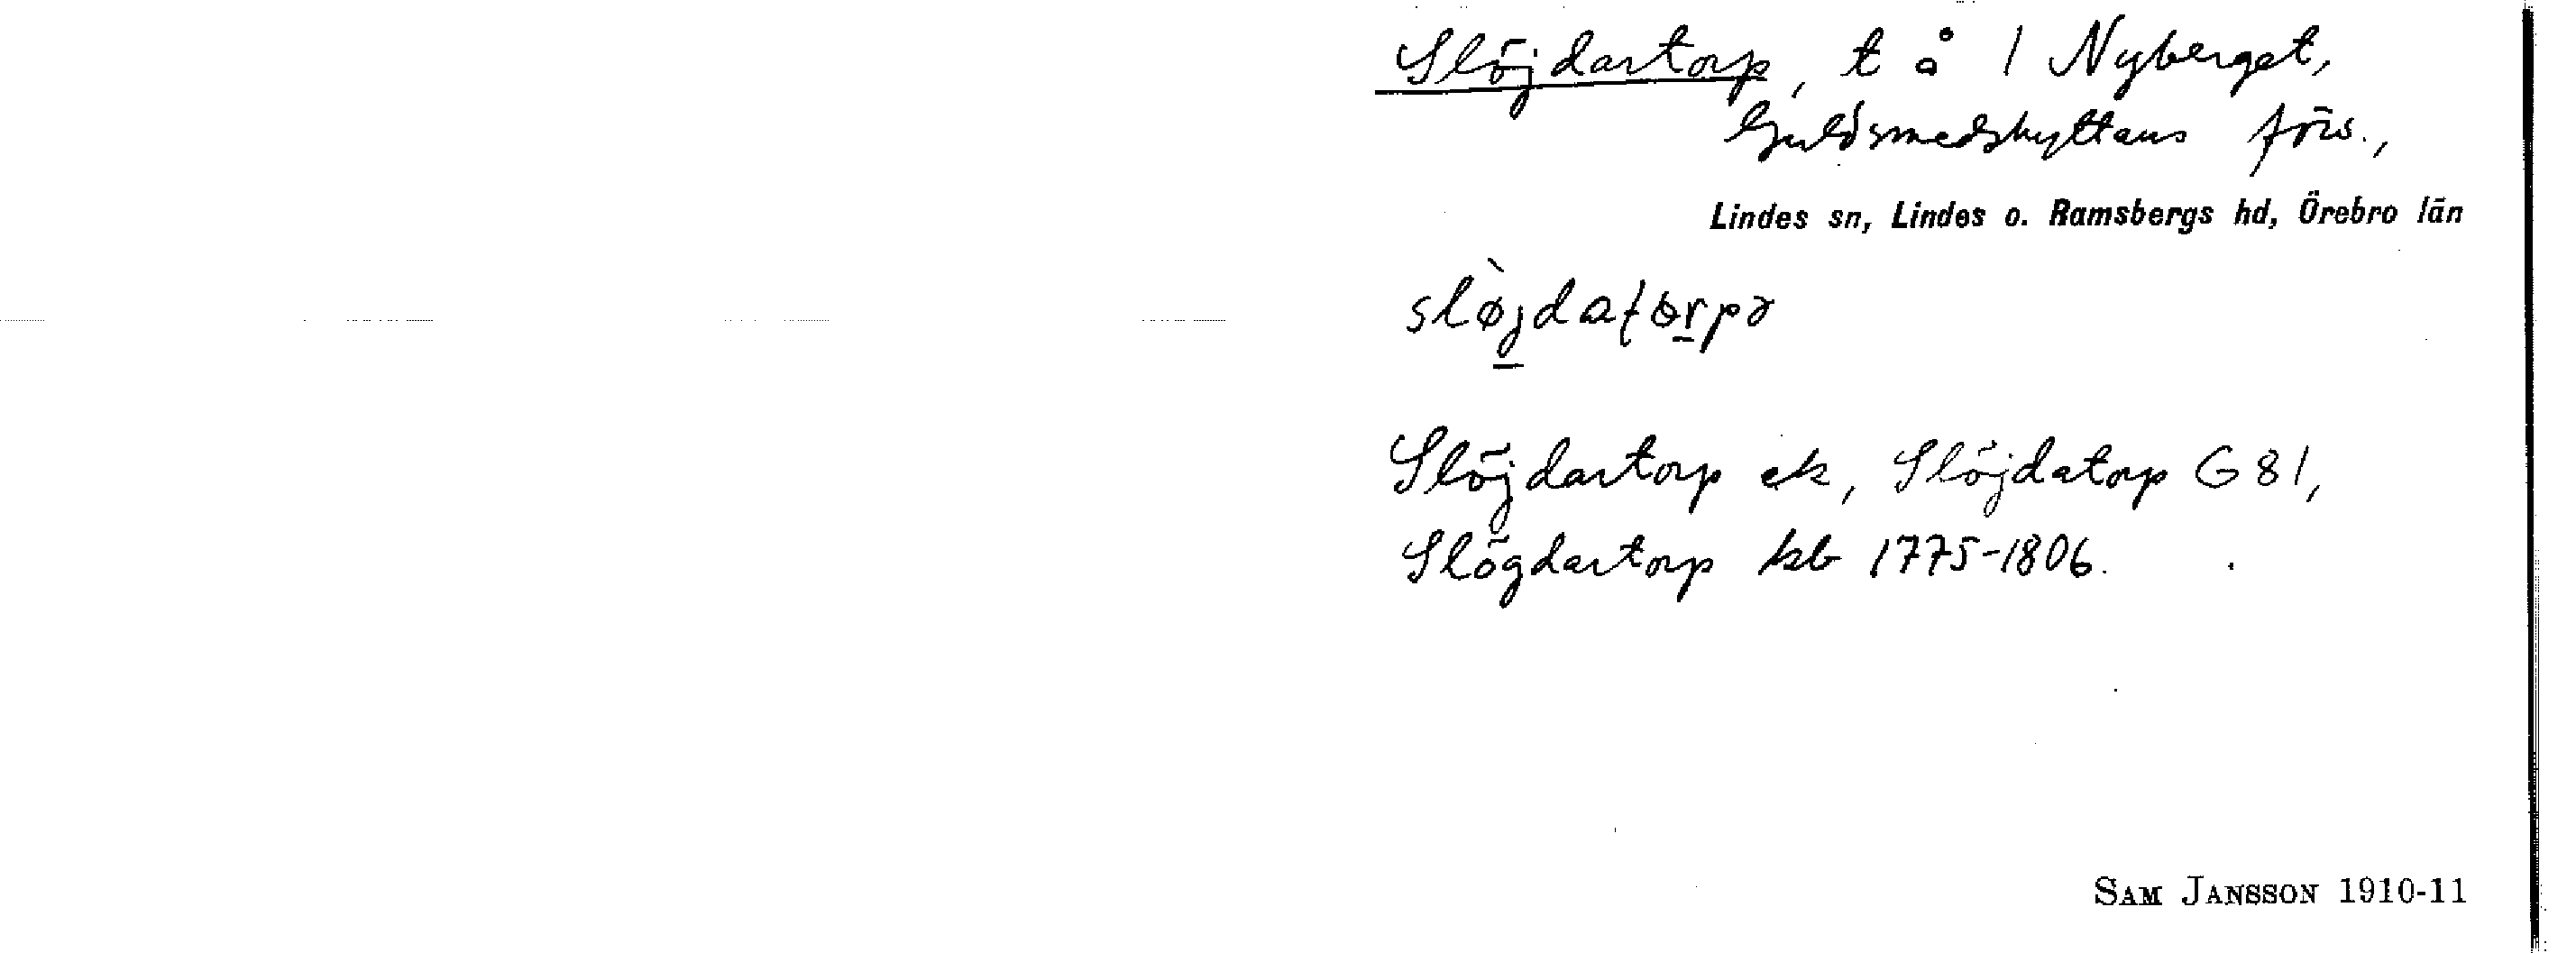 Slöjdartorp, t å 1 Nyberget,
Guldsmedshyttans förs.,
Lindes sn, Lindes o. Ramsbergs hd, Örebro län
slø̀jdatɷrpə
Slöjdartorp ek, Slöjdatorp G 81,
Slögdartorp kb 1775-1806.
SAM JANSSON 1910-11